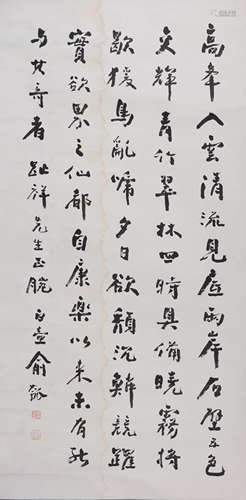 高峯入雲清流見底兩岸石壁五色
交輝青竹翠林四時具備曉霧將
歇猨鳥亂鳴夕日欲頹沉鱗競躍
實欲界之仙都自康樂以來未有能
与其奇者 趾祥先生正腕 白壺俞